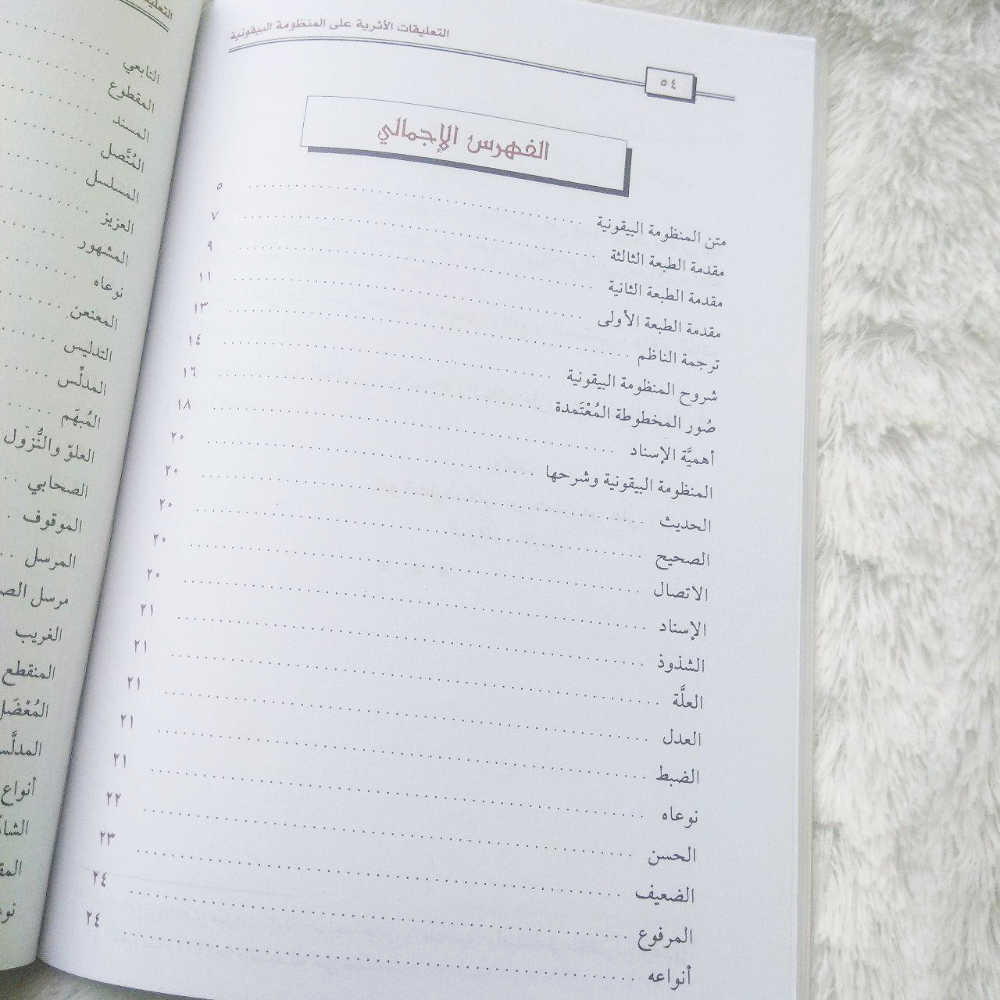 التعليقات الأثرية على المنظومة البيقونية
٥٤
الفهرس الإجمالي
متن المنظومة البيقونية ٥
مقدمة الطبعة الثالثة ٧
مقدمة الطبعة الثانية ٩
مقدمة الطبعة الأولى ١١
ترجمة الناظم ١٣
شروح المنظومة البيقونية ١٤
صُور المخطوطة المُعْتَمدة ١٦
أهميَّة الإسناد ١٨
المنظومة البيقونية وشرحها ٢٠
الحديث ٢٠
الصحيح ٢٠
الاتصال ٢٠
الإسناد ٢٠
الشذوذ ٢١
العلَّة ٢١
العدل ٢١
الضبط ٢١
نوعاه ٢١
الحسن ٢٢
الضعيف ٢٣
المرفوع ٢٤
أنواعه ٢٤
التابعي
المقطوع
المسند
المُتَّصل
المسلسل
العزيز
المشهور
نوعاه
المعنعن
التدليس
المدلِّس
المُبهَم
العلوّ والنُّزول
الصحابي
الموقوف
المرسل
مرسل
الغريب
المنقطع
المُعْضَل
أنواع